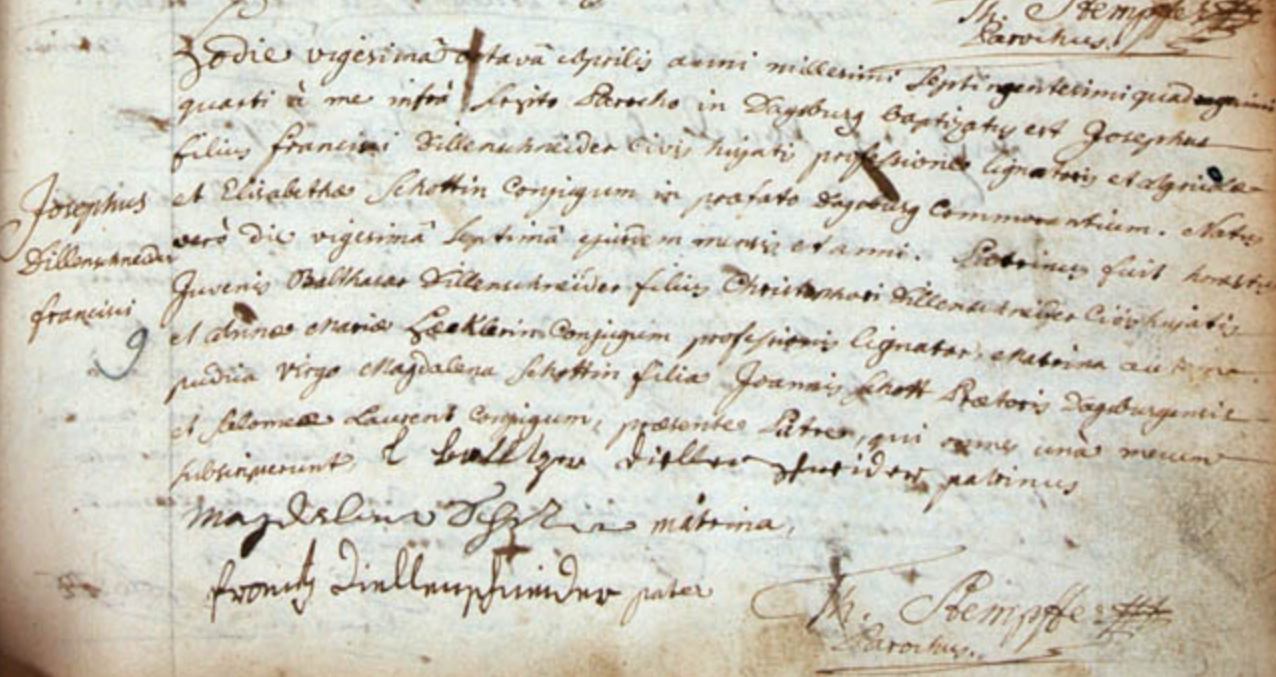 Th. Stempffer
Parochus.
Hodie vigesimâ octavâ Aprilis anni millesimi septingentesimi quadragesimi
quarti à me infrà scripto Parocho in Dagsburg baptizatus est Josephus
filius francisci Dillenschneider civis hujatis professione lignatoris et
et Elisabethæ Schottin Conjugum in præfato Dagsburg Commorantium. Natus
Josephus
Dillenschneider
francisci
9
verò die vigesimâ septimâ ejusdem mensis et anni. Patrinus fuit honestus
Juvenis Balthasar Dillenschneider filius Christophori Dillenschneider Civis hujatis
et Annæ Mariæ Conjugum professionis lignator. Matrina autem
pudica Virgo Magdalena Schottin filia Joannis Schott Prætoris Dagsburgensis
et Salomeæ Laurent Conjugum, præsente Patre, qui omnes unà mecum
subscripserunt, diller schneider patrinus
Magdelena matrina,
frantz Diellenschneider pater
Th. Stempffer
Parochus.